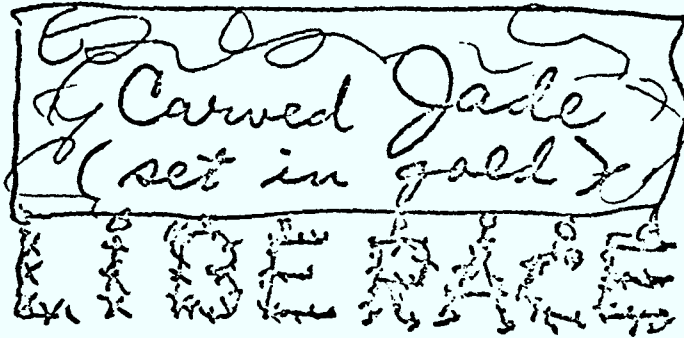 Carved Jade
(set in gold)
LIBERACE